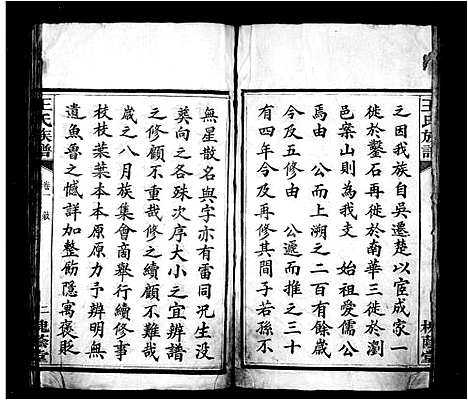 王氏族譜
之因我族自吳遷楚以宦成家一
徙於鑿石再徙於南華三徙於瀏
邑案山則為我支 始祖愛儒公
焉由 公而上溯之二百有餘歲
今及五修由 公遞而推之三十
有四年今及再修其間子若孫不
槐蔭堂
無星散名與字亦有雷同况生没
葵向之各殊次序大小之宜辨譜
之修顧不重哉修之續顧不難哉
歲之八月族集會商舉行續修事
枝枝葉葉本本原原力予辨明無
遺魚魯之憾詳加整飭隱寓褒貶
王氏族譜
卷一
敘
二
槐蔭堂